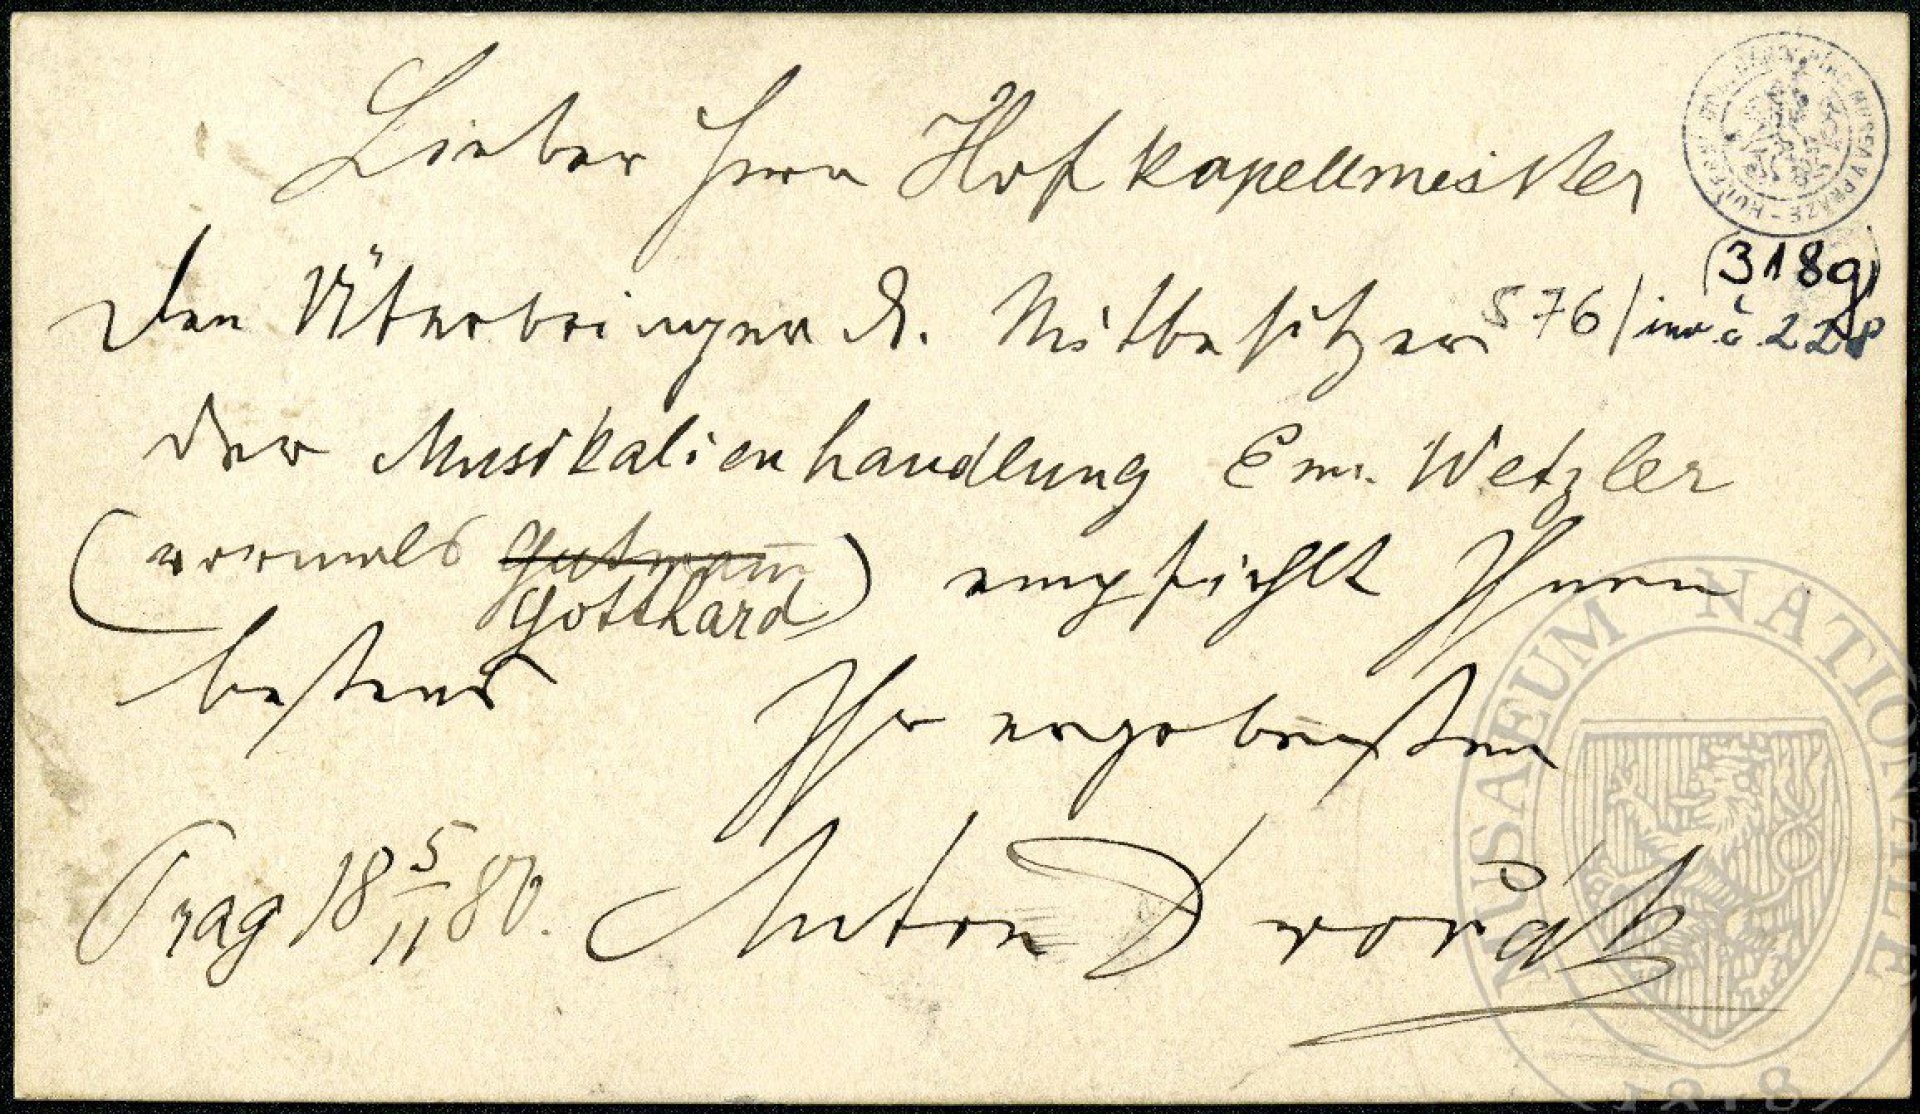 Lieber Herr Hofkapellmeister
(3189)
Den Überbringer d. Mitbesitzer
576/inv. č. 228
der Musikalienhandlung Em. Wetzler
(vormals Gutmann
Gotthard) empfiehlt Ihnen
bestens
Ihr ergebenster
Prag 18 5/11 80. Anton Dvořák
MUSAEUM NATIONALE
1818